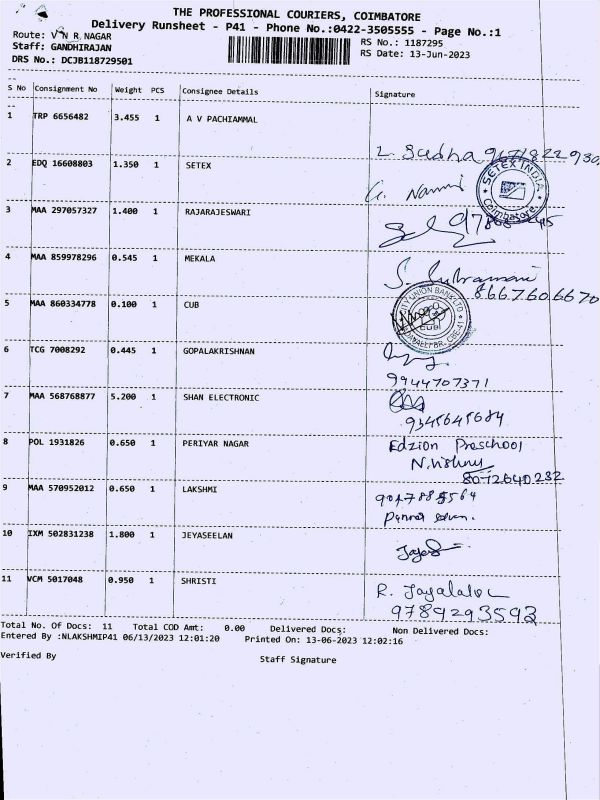 THE PROFESSIONAL COURIERS, COIMBATORE
Delivery Runsheet - P41 - Phone No.:0422-3505555 - Page No.:1
Route: V N R NAGAR
RS No.: 1187295
Staff: GANDHIRAJAN
RS Date: 13-Jun-2023
DRS No.: DCJB118729501
S No Consignment No Weight PCS Consignee Details Signature
1 TRP 6656482 3.455 1 A V PACHIAMMAL
2 EDQ 16608803 1.350 1 SETEX
SETEX INDIA
Coimbatore
3 MAA 297057327 1.400 1 RAJARAJESWARI
4 MAA 859978296 0.545 1 MEKALA
8667606670
5 MAA 860334778 0.100 1 CUB
CITY UNION BANK LTD
CUB
6 TCG 7008292 0.445 1 GOPALAKRISHNAN
9944707371
7 MAA 568768877 5.200 1 SHAN ELECTRONIC
9345645684
8 POL 1931826 0.650 1 PERIYAR NAGAR Edzion Preschool
N. Vishnu
8072640232
9 MAA 570952012 0.650 1 LAKSHMI
10 IXM 502831238 1.800 1 JEYASEELAN
11 VCM 5017048 0.950 1 SHRISTI
9789293593
Total No. Of Docs: 11 Total COD Amt: 0.00 Delivered Docs: Non Delivered Docs:
Entered By :NLAKSHMIP41 06/13/2023 12:01:20 Printed On: 13-06-2023 12:02:16
Verified By Staff Signature